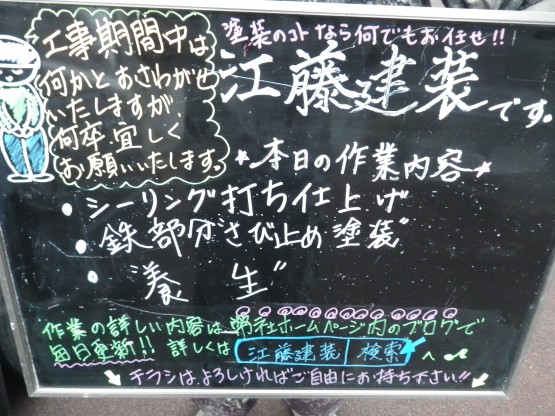 工事期間中は
何かとおさわがせ
いたしますが、
何卒宜しく
お願いいたします。
塗装のコトなら何でもお任せ!!
江藤建装です。
*本日の作業内容*
・シーリング打ち仕上げ
・鉄部分さび止め塗装
・養生
作業の詳しい内容は弊社ホームページ内のブログで
毎日更新!! 詳しくは 江藤建装 検索 へ
↓チラシは、よろしければご自由にお持ち下さい!!↓